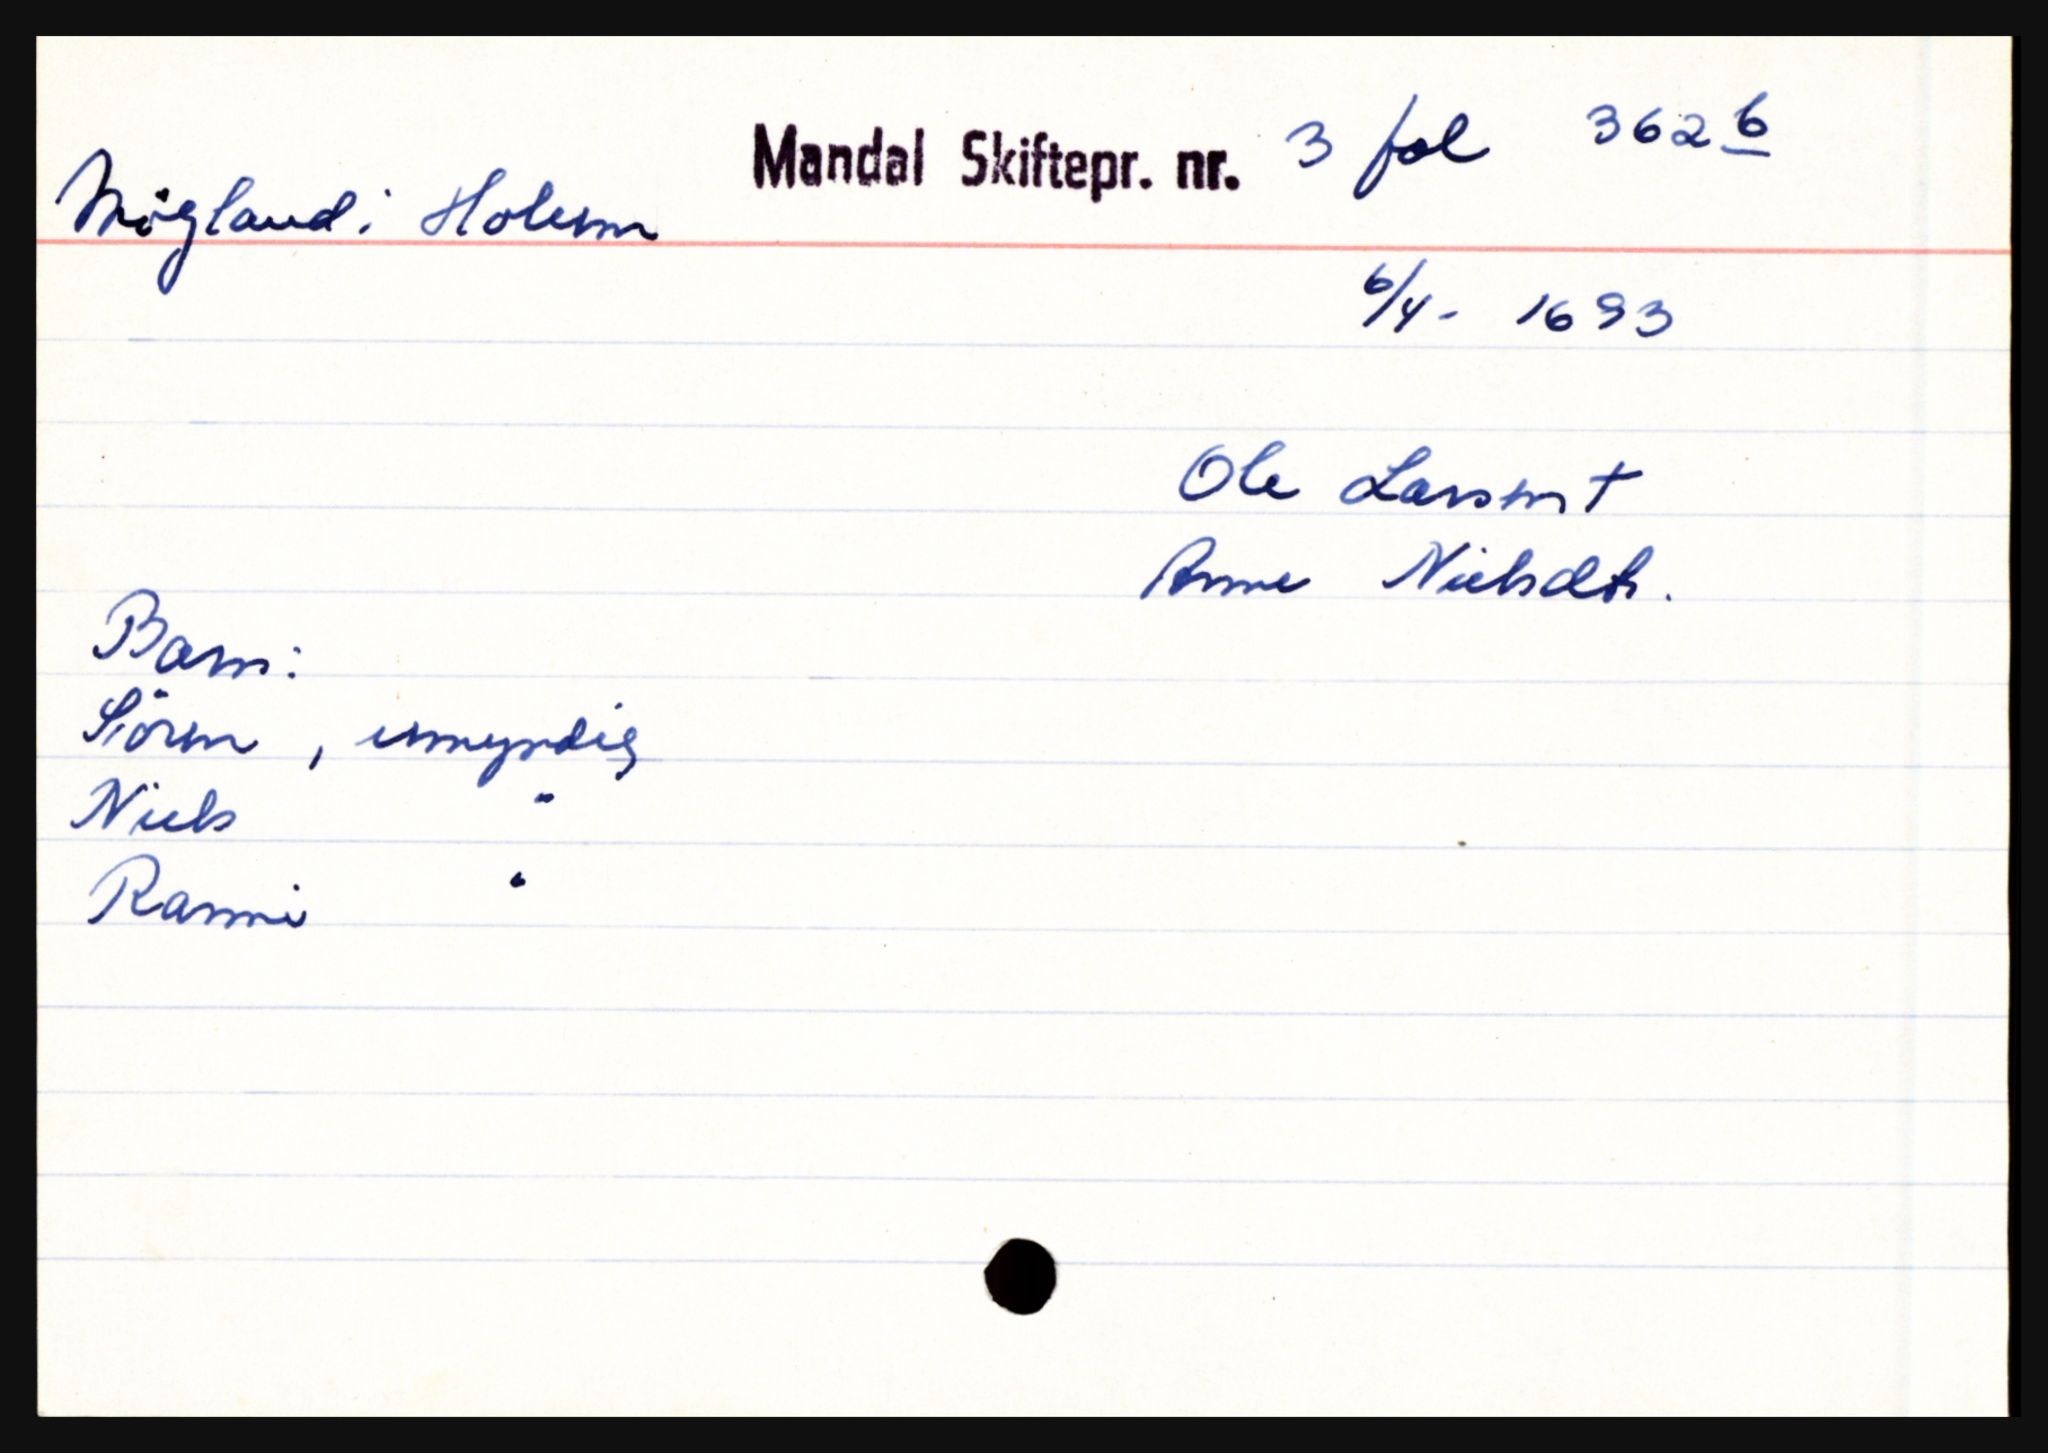 Mandal Skiftepr. nr. 3 fol 362 b
Mögland i Holum
6/4 - 1693
Ole Larsen †
Anne Nielsdtr.
Barn:
Sören, umyndig
Niels "
Ranni "